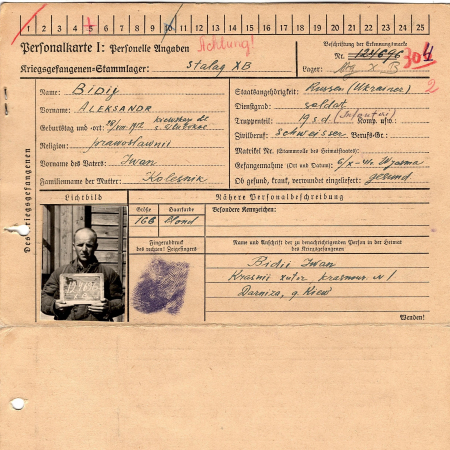 1 2 3 4 5 6 7 8 9 10 11 12 13 14 15 16 17 18 19 20 21 22 23 24 25
Personalkarte I: Personelle Angaben
Achtung!
Beschriftung der Erkennungsmarke
Nr. 124696
304
Kriegsgefangenen-Stammlager: Stalag XB
Lager: X B
2
Des Kriegsgefangenen
Name: Bidij
Vorname: ALEKSANDR
Geburtstag und -ort:
Religion: prawosławnij
Vorname des Vaters: Iwan
Familienname der Mutter: Kolesnik
Staatsangehörigkeit: Russen (Ukrainer)
Dienstgrad: soldat
Truppenteil: 19 s.d. (Infanterie) Komp. usw.:
Zivilberuf: Schweisser Berufs-Gr.:
Matrikel Nr. (Stammrolle des Heimatstaates):
Gefangennahme (Ort und Datum): Wjasma
Ob gesund, krank, verwundet eingeliefert: gesund
Lichtbild
Nähere Personalbeschreibung
Größe
Haarfarbe
Besondere Kennzeichen:
168
blond
Fingerabdruck
des rechten! Zeigefingers
Name und Anschrift der zu benachrichtigenden Person in der Heimat
des Kriegsgefangenen
Bidij Iwan
Darniza, g. Kiew
Wenden!